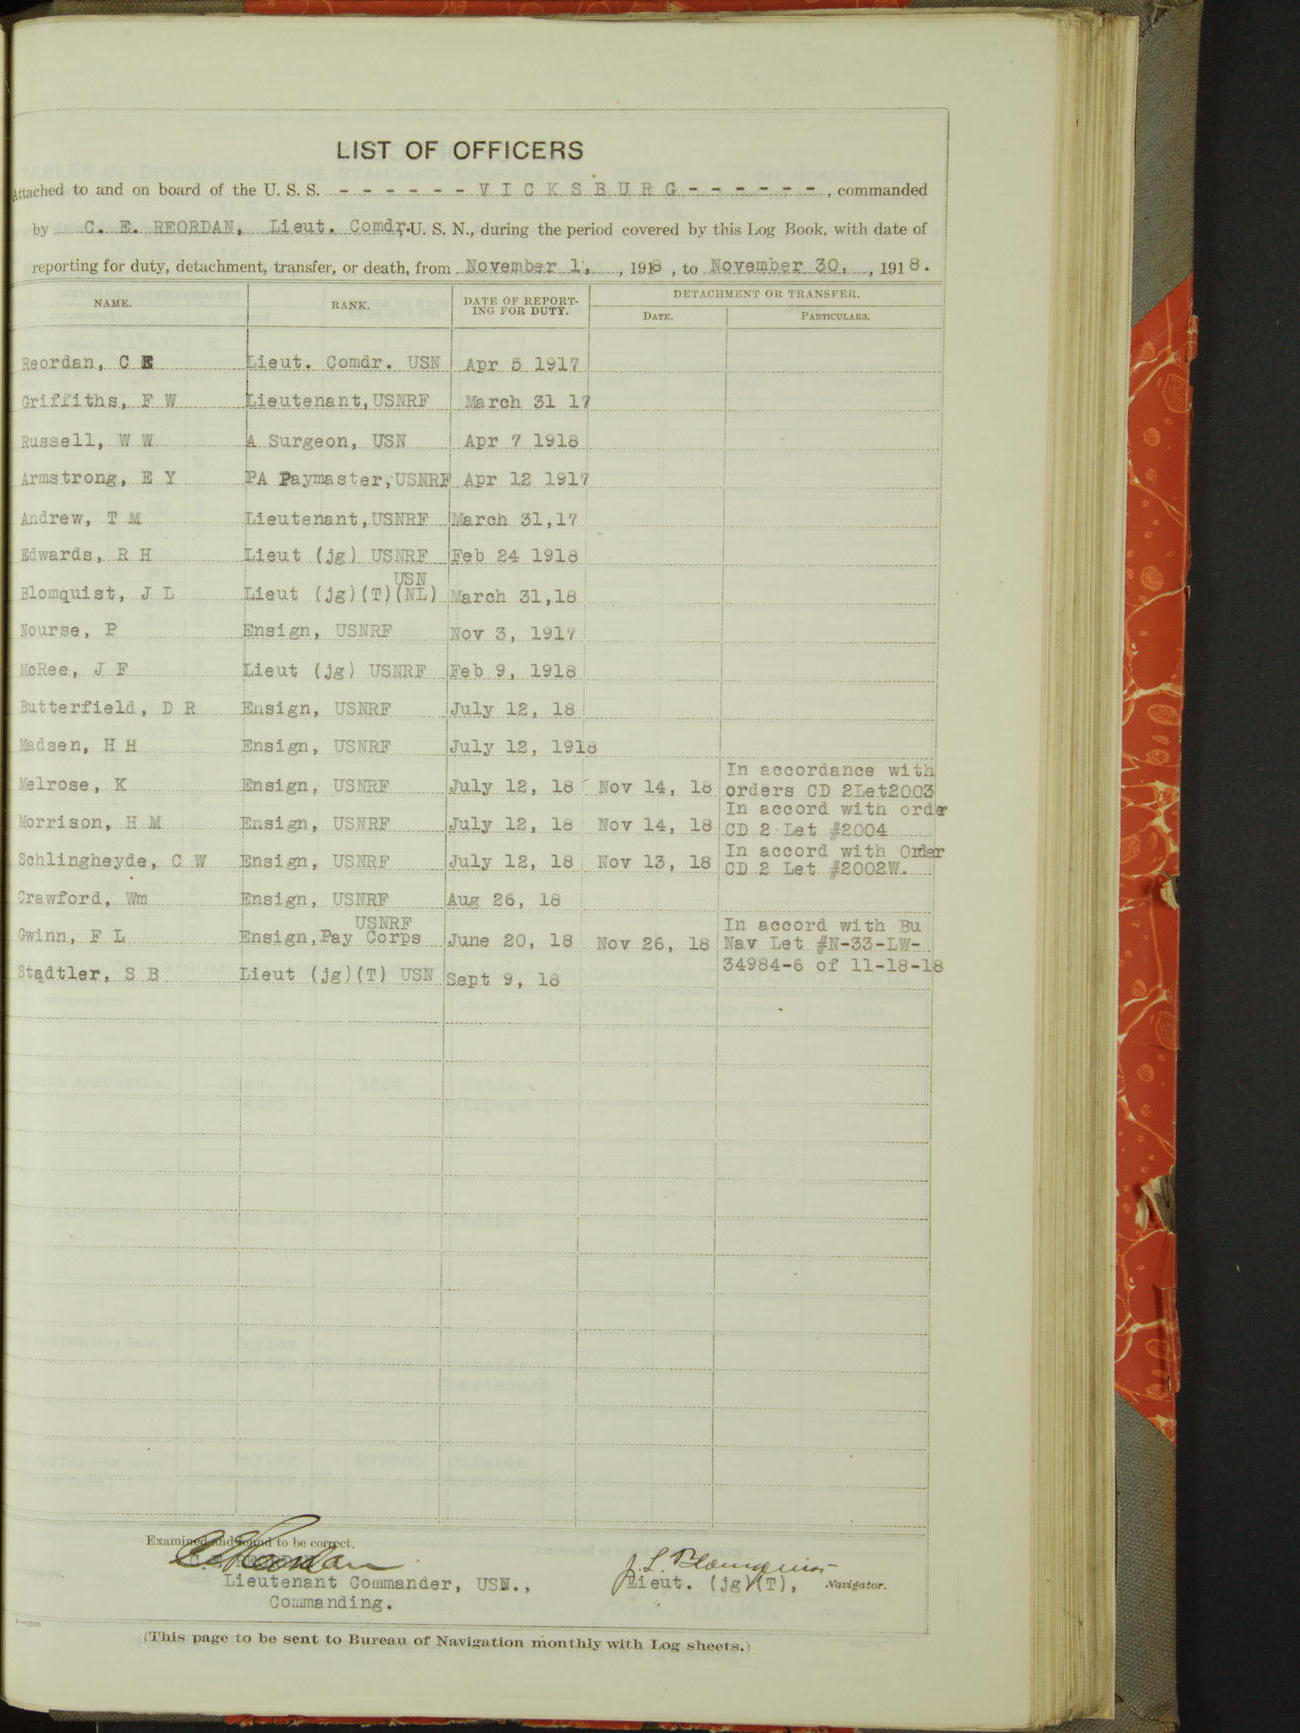 LIST OF OFFICERS
Attached to and on board of the U. S. S. - - - - - - V I C K S B U R G - - - - - - , commanded
by C. E. REORDAN, Lieut. Comdr. U. S. N., during the period covered by this Log Book, with date of
reporting for duty, detachment, transfer, or death, from November 1, , 1918 , to November 30, , 1918.
NAME. RANK. DATE OF REPORT- DETACHMENT OR TRANSFER.
ING FOR DUTY. DATE. PARTICULARS.
Reordan, C E Lieut. Comdr. USN Apr 5 1917
Griffiths, F W Lieutenant, USNRF March 31 17
Russell, W W A Surgeon, USN Apr 7 1918
Armstrong, E Y PA Paymaster, USNRF Apr 12 1917
Andrew, T M Lieutenant, USNRF March 31,17
Edwards, R H Lieut (jg) USNRF Feb 24 1918
USN
Blomquist, J L Lieut (jg)(T)(NL) March 31,18
Nourse, P Ensign, USNRF Nov 3, 1917
McRee, J F Lieut (jg) USNRF Feb 9, 1918
Butterfield, D R Ensign, USNRF July 12, 18
Madsen, H H Ensign, USNRF July 12, 1918
In accordance with
Melrose, K Ensign, USNRF July 12, 18 Nov 14, 18 orders CD 2Let2003
In accord with order
Morrison, H M Ensign, USNRF July 12, 18 Nov 14, 18 CD 2 Let #2004
In accord with Order
Schlingheyde, C W Ensign, USNRF July 12, 18 Nov 13, 18 CD 2 Let #2002W.
Crawford, Wm Ensign, USNRF Aug 26, 18
USNRF In accord with Bu
Gwinn, F L Ensign, Pay Corps June 20, 18 Nov 26, 18 Nav Let #N-33-LW-
34984-6 of 11-18-18
Stadtler, S B Lieut (jg)(T) USN Sept 9, 18
Examined and found to be correct.
C E Reordan J. L. Blomquist
Lieutenant Commander, USN., Lieut. (jg)(T), Navigator.
Commanding.
(This page to be sent to Bureau of Navigation monthly with Log sheets.)